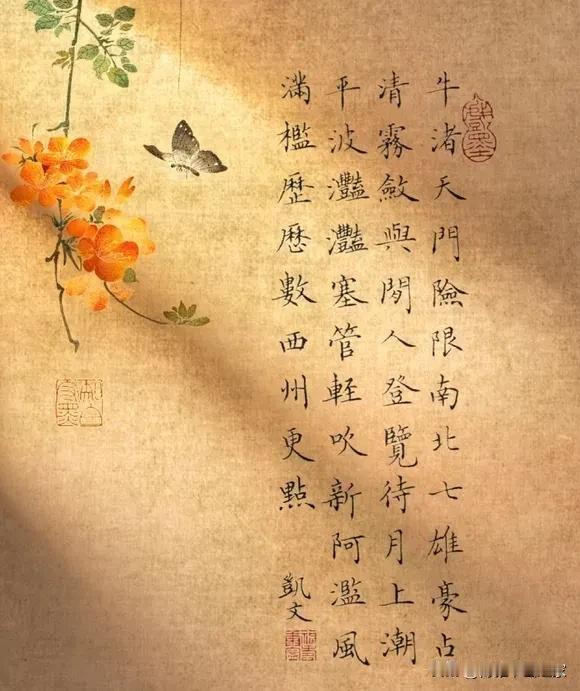 牛渚天門險限南北七雄豪占
清霧斂與閒人登覽待月上潮
平波灩灩塞管輕吹新阿濫風
滿檻歷歷數西州更點
凱文